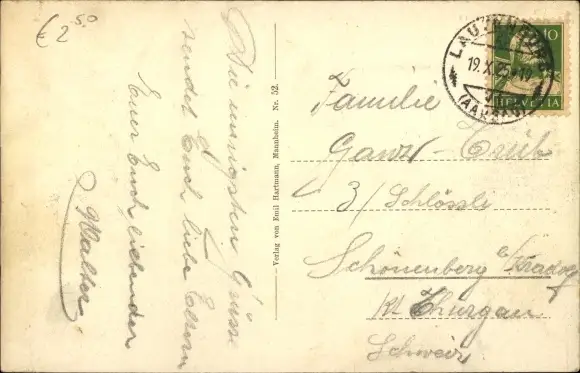 € 2.50
Die innigsten Grüsse
sendet Euch liebe Eltern
Euer Euch liebender
Walter
— Verlag von Emil Hartmann, Mannheim. Nr. 52. —
10
HELVETIA
LAUFENBURG
19.X.25.-19
(AARGAU)
Familie
Ganz-
z/ Schlössli
Schönenberg a/Kradolf
Kt Thurgau
Schweiz